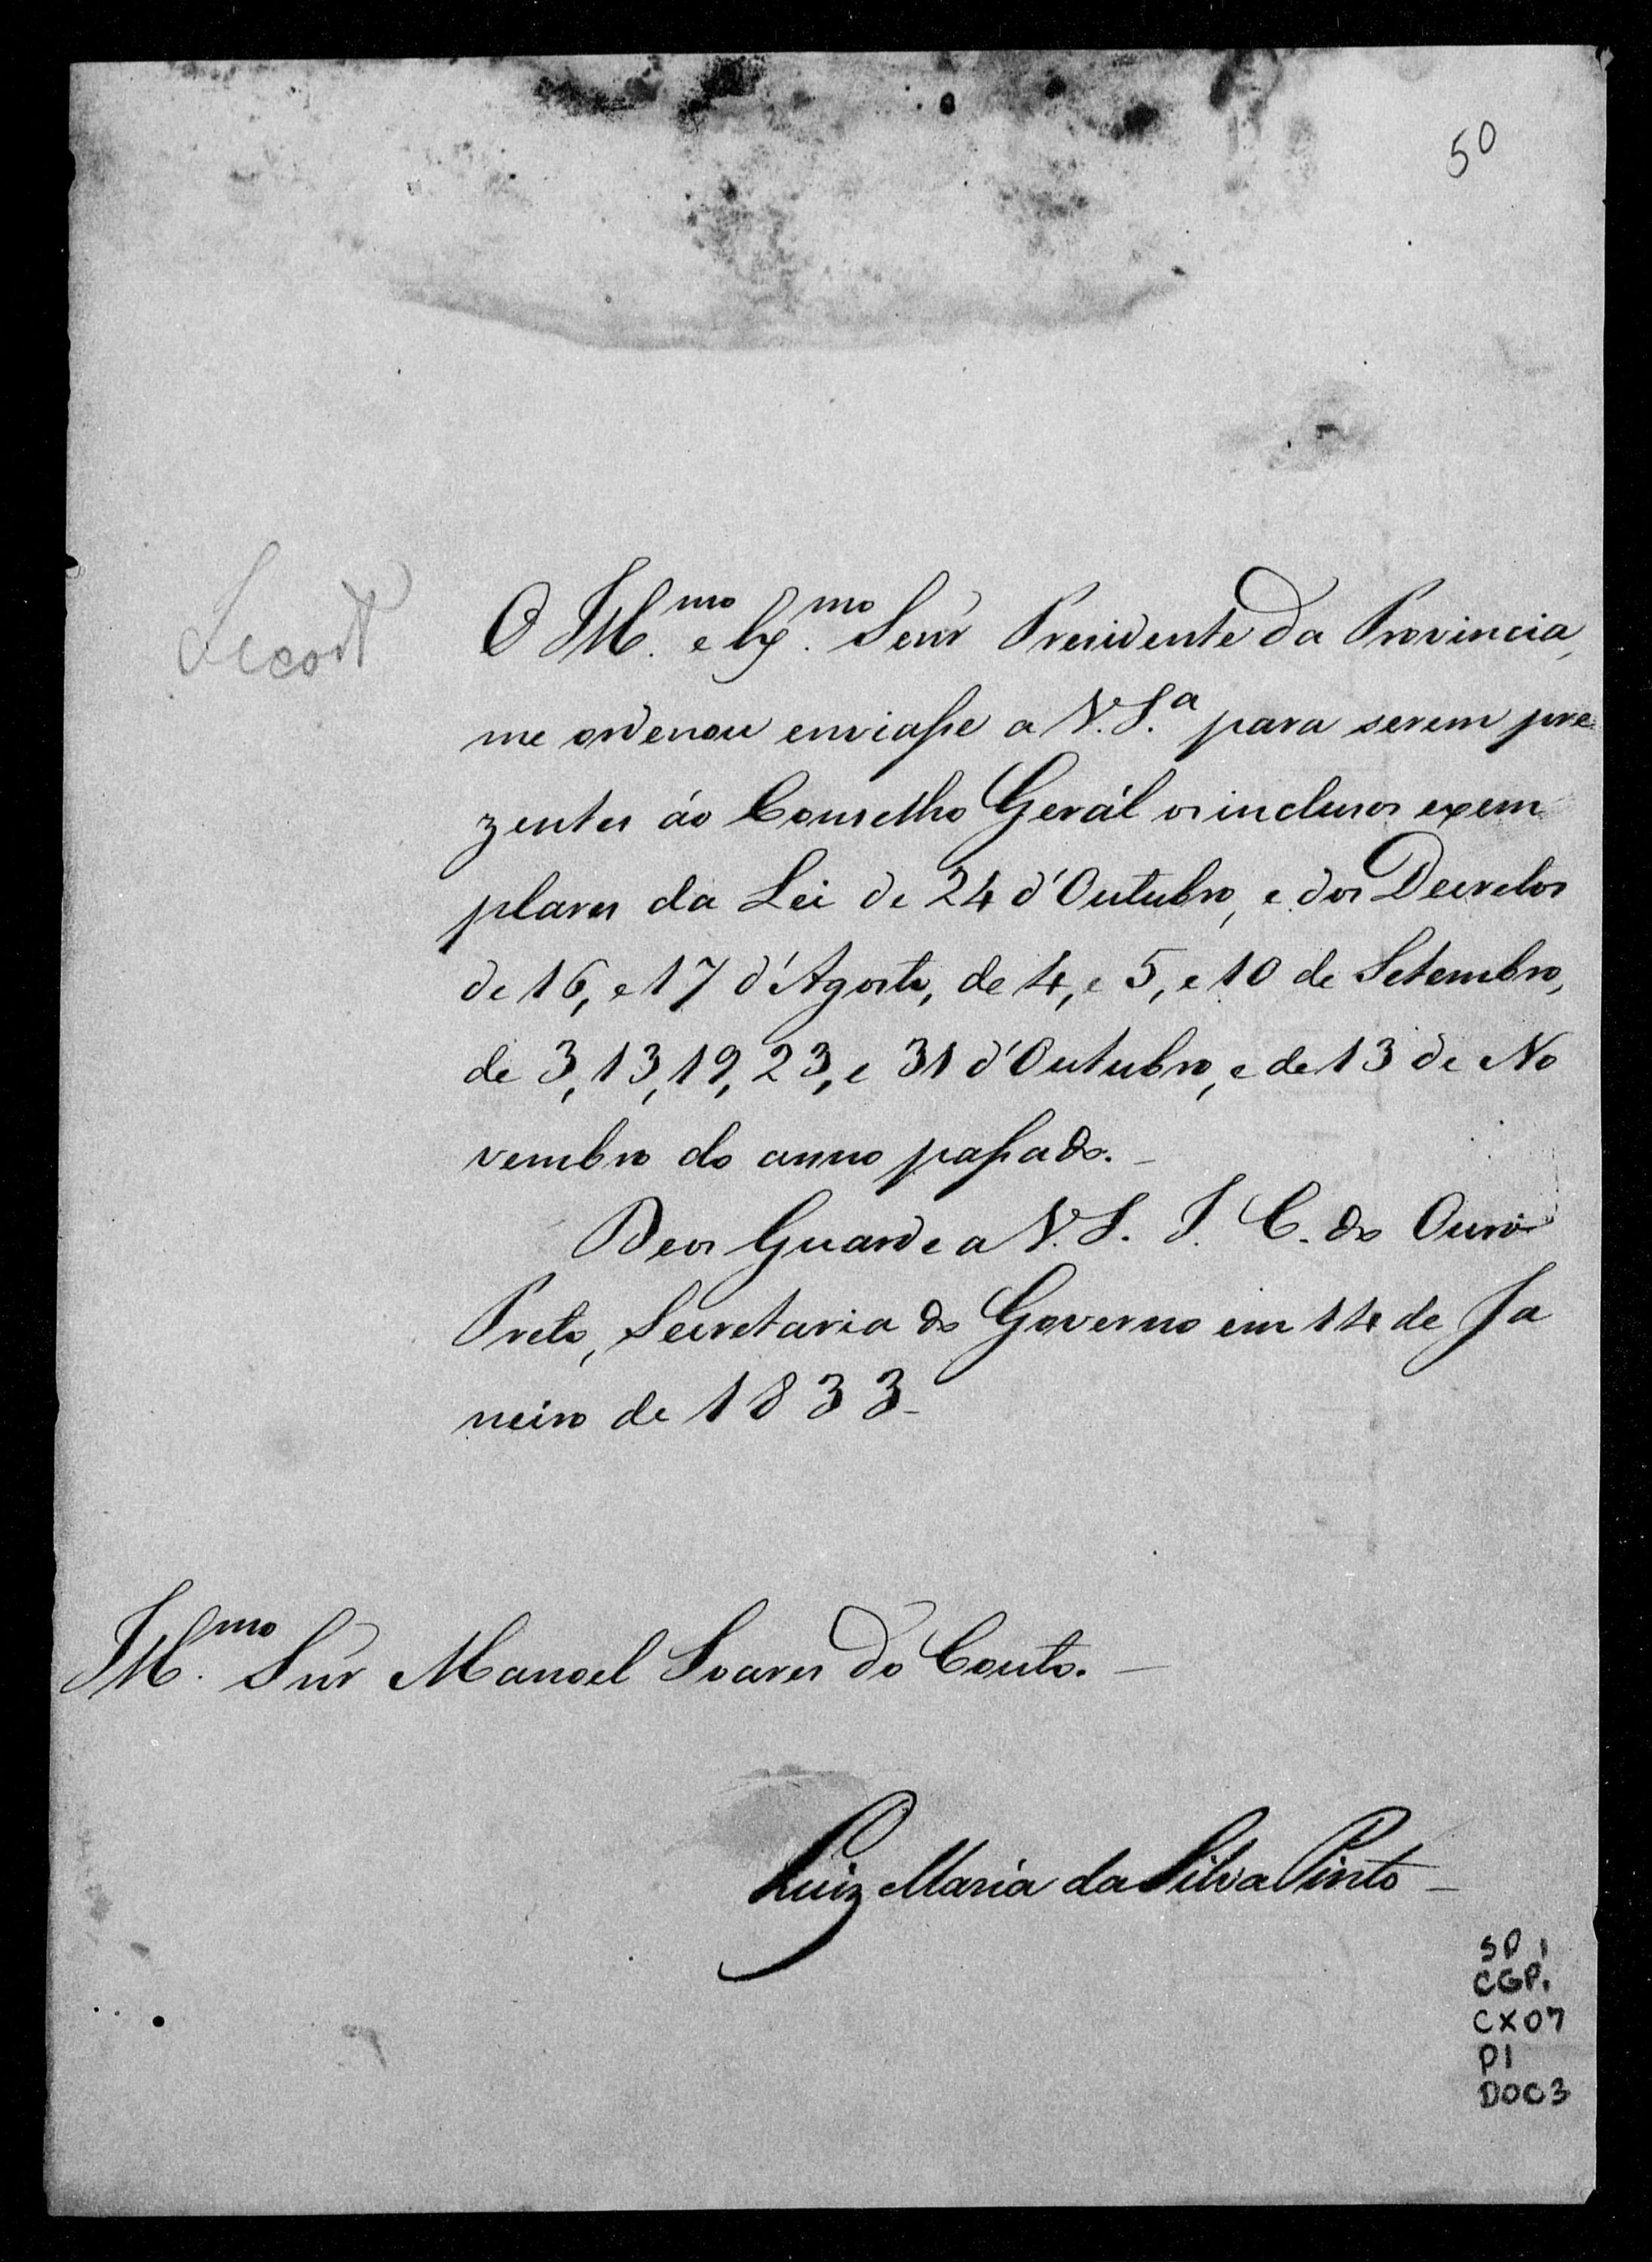 50
O Ill.mo e Ex.mo Senr Presidente da Provincia,
me ordenou enviasse a V.S.a para serem pre
zentes áo Conselho Gerál os inclusos exem
plares da Lei de 24 d'Outubro, e dos Decretos
de 16, e 17 d'Agosto, de 4, e 5, e 10 de Setembro,
de 3, 13, 19, 23, e 31 d'Outubro, e de 13 de No
vembro do anno passado.
Deos Guarde a V. S. I. C. do Ouro
Preto, Secretaria do Governo em 14 de Ja
neiro de 1833
Ill.mo Snr Manoel Soares do Couto.
Luiz Maria da Silva Pinto
SP 1
CGP.
CX07
P1
DOC3